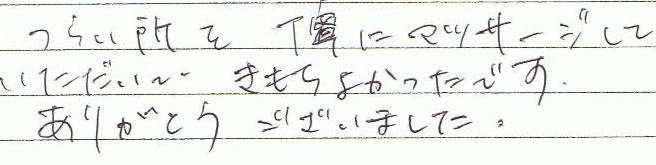 つらい所を丁寧にマッサージして
いただいて きもちよかったです.
ありがとうございました。